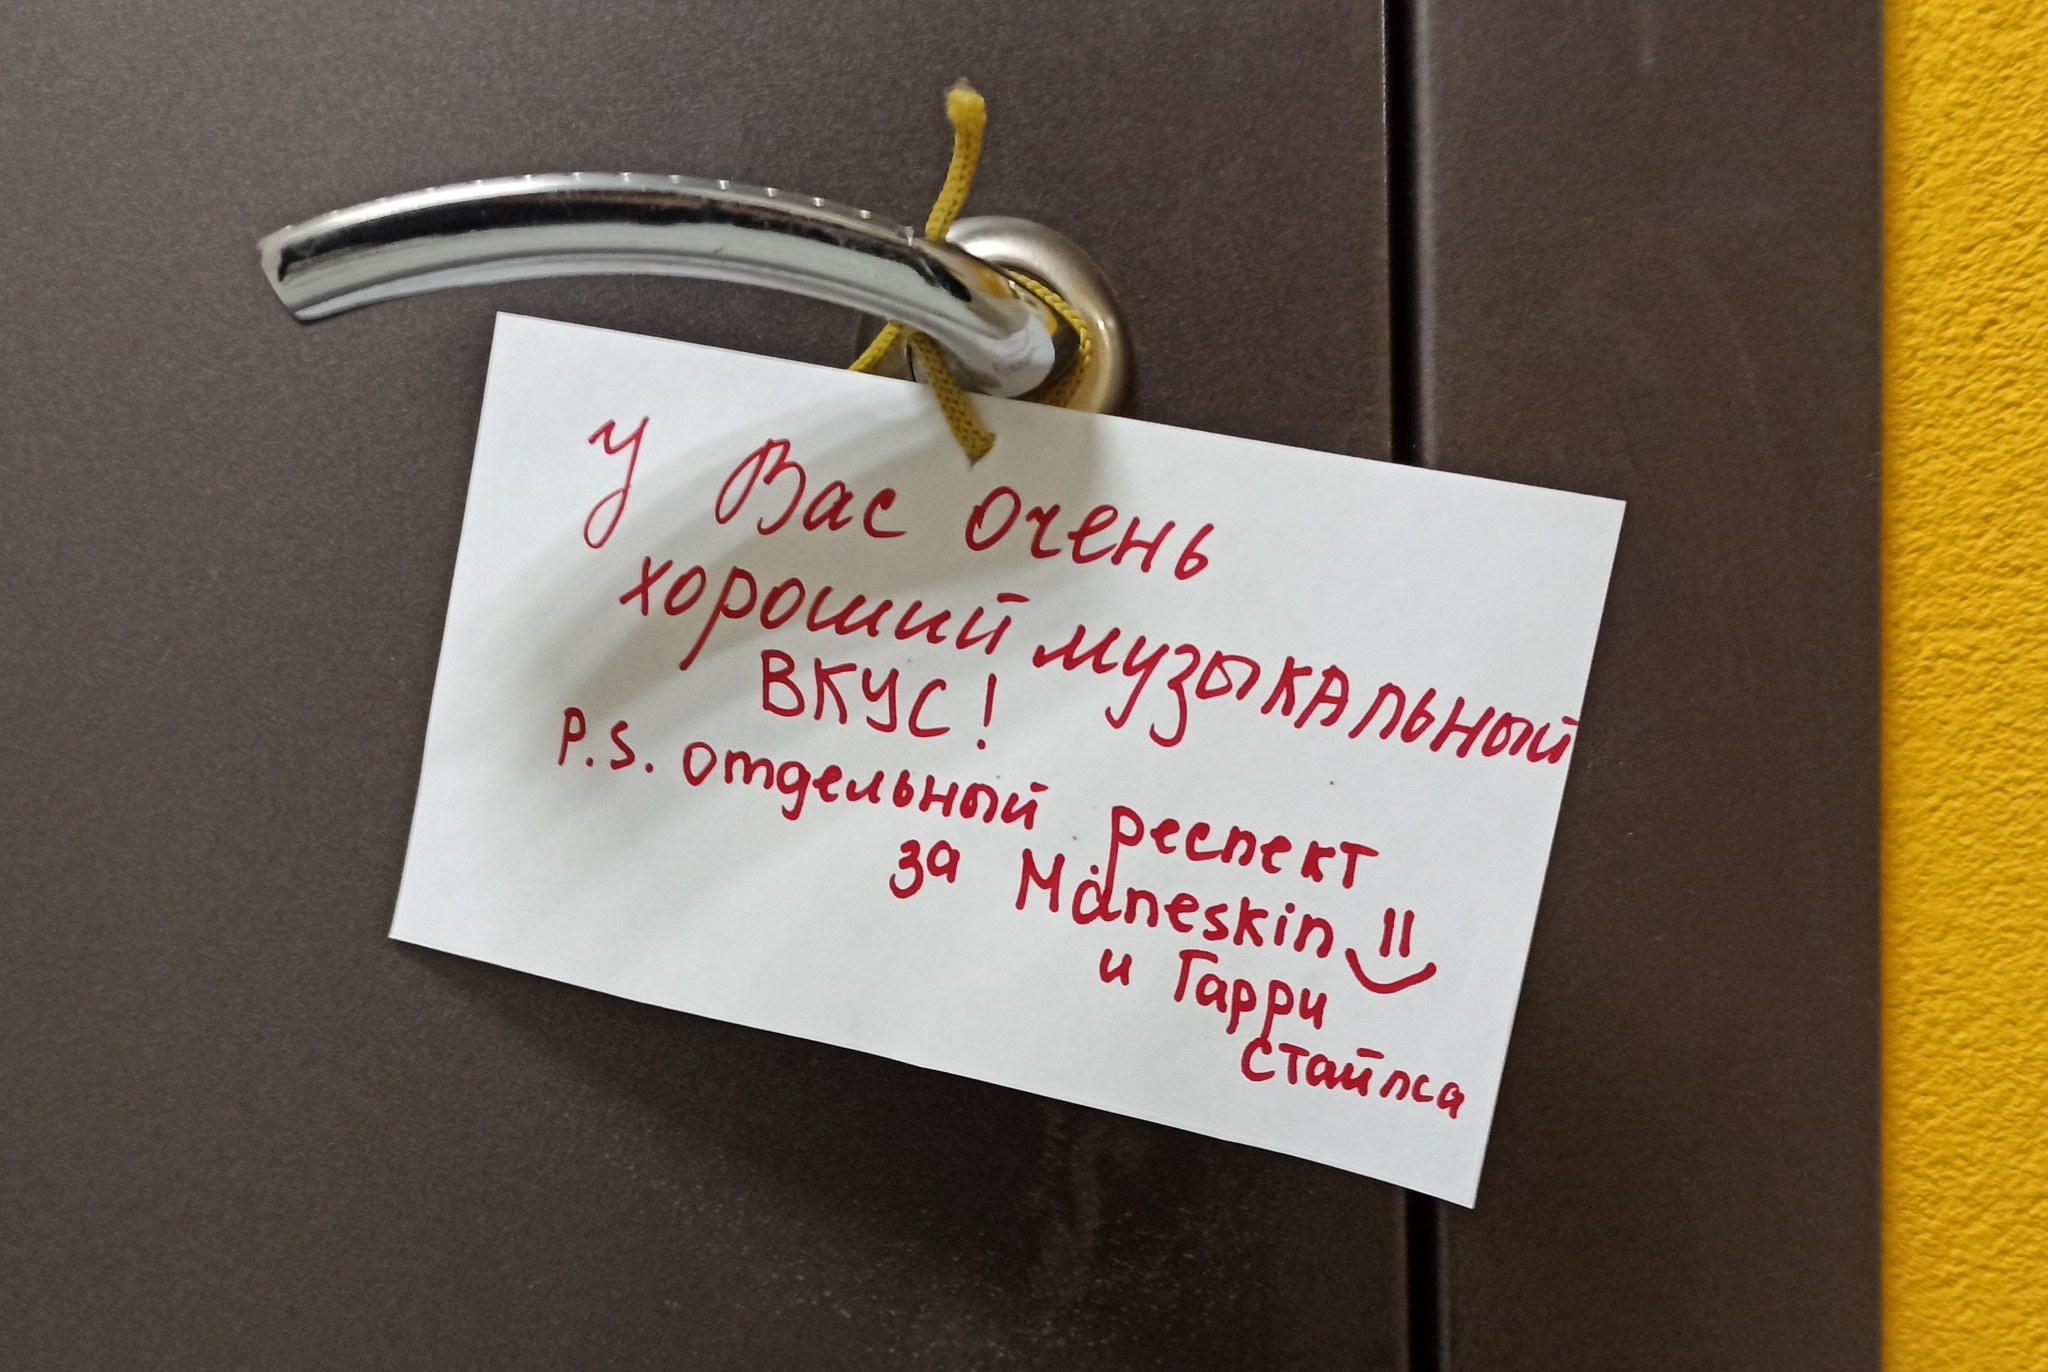 У Вас очень
хороший музыкальный
вкус!
P.S. отдельный респект
за Måneskin
и Гарри
Стайлса